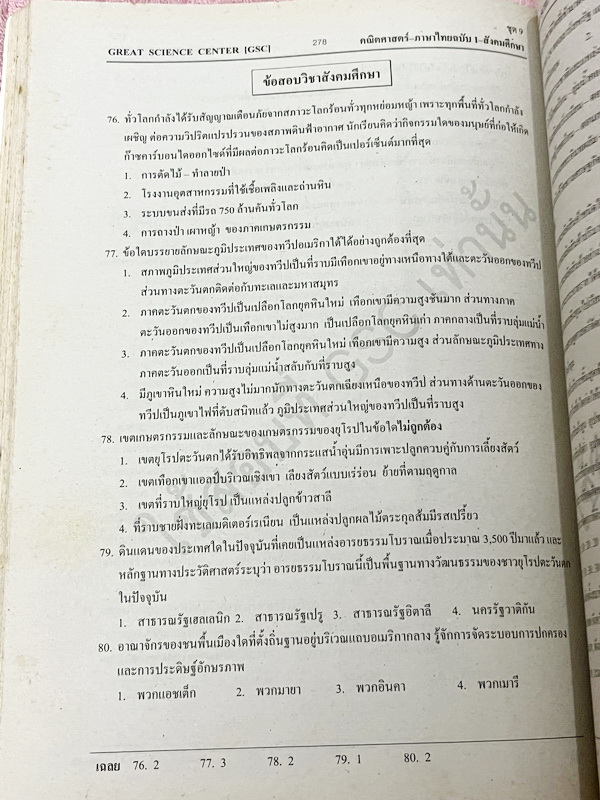 ชุด 9
GREAT SCIENCE CENTER [GSC] 278 คณิตศาสตร์–ภาษาไทยฉบับ 1–สังคมศึกษา
ข้อสอบวิชาสังคมศึกษา
76. ทั่วโลกกำลังได้รับสัญญาณเตือนภัยจากสภาวะโลกร้อนทั่วทุกหย่อมหญ้า เพราะทุกพื้นที่ทั่วโลกกำลัง
เผชิญ ต่อความวิปริตแปรปรวนของสภาพดินฟ้าอากาศ นักเรียนคิดว่ากิจกรรมใดของมนุษย์ที่ก่อให้เกิด
ก๊าซคาร์บอนไดออกไซด์ที่มีผลต่อภาวะโลกร้อนคิดเป็นเปอร์เซ็นต์มากที่สุด
1. การตัดไม้ – ทำลายป่า
2. โรงงานอุตสาหกรรมที่ใช้เชื้อเพลิงและถ่านหิน
3. ระบบขนส่งที่มีรถ 750 ล้านคันทั่วโลก
4. การถางป่า เผาหญ้า ของภาคเกษตรกรรม
77. ข้อใดบรรยายลักษณะภูมิประเทศของทวีปอเมริกาใต้ได้อย่างถูกต้องที่สุด
1. สภาพภูมิประเทศส่วนใหญ่ของทวีปเป็นที่ราบมีเทือกเขาอยู่ทางเหนือทางใต้และตะวันออกของทวีป
ส่วนทางตะวันตกติดต่อกับทะเลและมหาสมุทร
2. ภาคตะวันตกของทวีปเป็นเปลือกโลกยุคหินใหม่ เทือกเขามีความสูงชันมาก ส่วนทางภาค
ตะวันออกของทวีปเป็นเทือกเขาไม่สูงมาก เป็นเปลือกโลกยุคหินเก่า ภาคกลางเป็นที่ราบลุ่มแม่น้ำ
3. ภาคตะวันตกของทวีปเป็นเปลือกโลกยุคหินใหม่ เทือกเขามีความสูง ส่วนลักษณะภูมิประเทศทาง
ภาคตะวันออกเป็นที่ราบลุ่มแม่น้ำสลับกับที่ราบสูง
4. มีภูเขาหินใหม่ ความสูงไม่มากนักทางตะวันตกเฉียงเหนือของทวีป ส่วนทางด้านตะวันออกของ
ทวีปเป็นภูเขาไฟที่ดับสนิทแล้ว ภูมิประเทศส่วนใหญ่ของทวีปเป็นที่ราบสูง
78. เขตเกษตรกรรมและลักษณะของเกษตรกรรมของยุโรปในข้อใดไม่ถูกต้อง
1. เขตยุโรปตะวันตกได้รับอิทธิพลจากกระแสน้ำอุ่นมีการเพาะปลูกควบคู่กับการเลี้ยงสัตว์
2. เขตเทือกเขาแอลป์บริเวณเชิงเขา เลี้ยงสัตว์แบบเร่ร่อน ย้ายที่ตามฤดูกาล
3. เขตที่ราบใหญ่ยุโรป เป็นแหล่งปลูกข้าวสาลี
4. ที่ราบชายฝั่งทะเลเมดิเตอร์เรเนียน เป็นแหล่งปลูกผลไม้ตระกูลส้มมีรสเปรี้ยว
79. ดินแดนของประเทศใดในปัจจุบันที่เคยเป็นแหล่งอารยธรรมโบราณเมื่อประมาณ 3,500 ปีมาแล้ว และ
หลักฐานทางประวัติศาสตร์ระบุว่า อารยธรรมโบราณนี้เป็นพื้นฐานทางวัฒนธรรมของชาวยุโรปตะวันตก
ในปัจจุบัน
1. สาธารณรัฐเฮลเลนิก 2. สาธารณรัฐเปรู 3. สาธารณรัฐอิตาลี 4. นครรัฐวาติกัน
80. อาณาจักรของชนพื้นเมืองใดที่ตั้งถิ่นฐานอยู่บริเวณแถบอเมริกากลาง รู้จักการจัดระบอบการปกครอง
และการประดิษฐ์อักษรภาพ
1. พวกแอชเต็ก 2. พวกมายา 3. พวกอินคา 4. พวกเมารี
เฉลย 76. 2 77. 3 78. 2 79. 1 80. 2